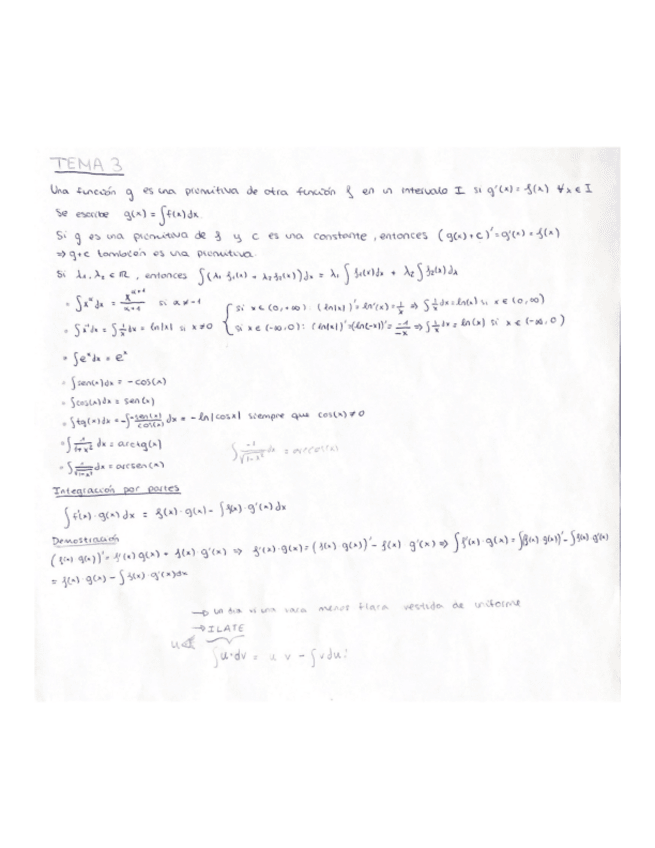 TEMA 3
Una función g es una primitiva de otra función f en un intervalo I si g'(x) = f(x) ∀x ∈ I
Se escribe g(x) = ∫f(x)dx.
Si g es una primitiva de f y c es una constante, entonces (g(x)+c)' = g'(x) = f(x)
⇒ g+c también es una primitiva.
Si λ₁, λ₂ ∈ ℝ, entonces ∫(λ₁ f₁(x) + λ₂ f₂(x))dx = λ₁ ∫ f₁(x)dx + λ₂ ∫ f₂(x)dx
∫x^α dx = x^(α+1)/(α+1) si α ≠ -1
{ si x ∈ (0, +∞): (ln|x|)' = ln'(x) = 1/x ⇒ ∫ 1/x dx = ln(x) si x ∈ (0, ∞)
∫x⁻¹dx = ∫ 1/x dx = ln|x| si x ≠ 0
si x ∈ (-∞, 0): (ln|x|)' = (ln(-x))' = -1/-x ⇒ ∫ 1/x dx = ln(x) si x ∈ (-∞, 0)
∫e^x dx = e^x
∫sen(x)dx = -cos(x)
∫cos(x)dx = sen(x)
∫tg(x)dx = -∫ -sen(x)/cos(x) dx = -ln|cosx| siempre que cos(x) ≠ 0
∫ 1/(1+x²) dx = arctg(x)
∫ -1/√(1-x²) dx = arccos(x)
∫ 1/√(1-x²) dx = arcsen(x)
Integración por partes
∫f'(x)·g(x)dx = f(x)·g(x) - ∫f(x)·g'(x)dx
Demostración
(f(x)·g(x))' = f'(x)·g(x) + f(x)·g'(x) ⇒ f'(x)·g(x) = (f(x)·g(x))' - f(x)·g'(x) ⇒ ∫f'(x)·g(x) = ∫(f(x)·g(x))' - ∫f(x)·g'(x)
= f(x)·g(x) - ∫f(x)·g'(x)dx
→ un día vi una vaca menos flaca vestida de uniforme
→ ILATE
∫u·dv = u v - ∫vdu